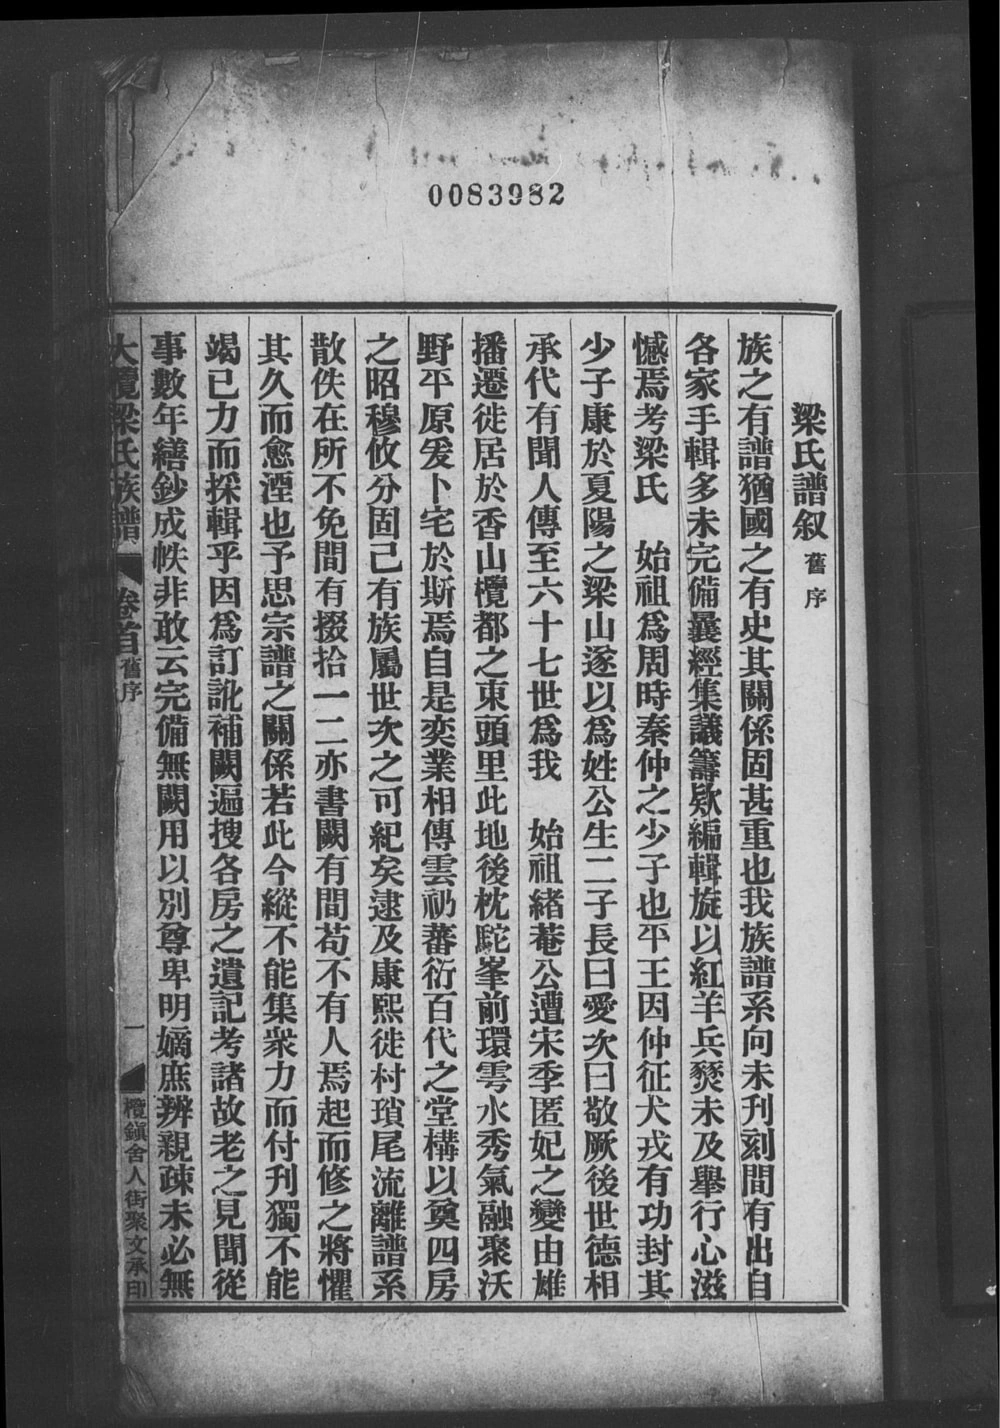 0083982
梁氏譜叙 舊序
族之有譜猶國之有史其關係固甚重也我族譜系向未刊刻間有出自
各家手輯多未完備曩經集議籌欵編輯旋以紅羊兵燹未及舉行心滋
憾焉考梁氏　始祖爲周時秦仲之少子也平王因仲征犬戎有功封其
少子康於夏陽之梁山遂以爲姓公生二子長曰愛次曰敬厥後世德相
承代有聞人傳至六十七世爲我　始祖緒菴公遭宋季匿妃之變由雄
播遷徙居於香山欖都之東頭里此地後枕駝峯前環雩水秀氣融聚沃
野平原爰卜宅於斯焉自是奕業相傳雲礽蕃衍百代之堂構以奠四房
之昭穆攸分固已有族屬世次之可紀矣逮及康熙徙村瑣尾流離譜系
散佚在所不免間有掇拾一二亦書闕有間苟不有人焉起而修之將懼
其久而愈湮也予思宗譜之關係若此今縱不能集衆力而付刊獨不能
竭已力而採輯乎因爲訂訛補闕遍搜各房之遺記考諸故老之見聞從
事數年繕鈔成帙非敢云完備無闕用以別尊卑明嫡庶辨親疎未必無
大欖梁氏族譜 卷首 舊序 一 欖鎭舍人街聚文承印